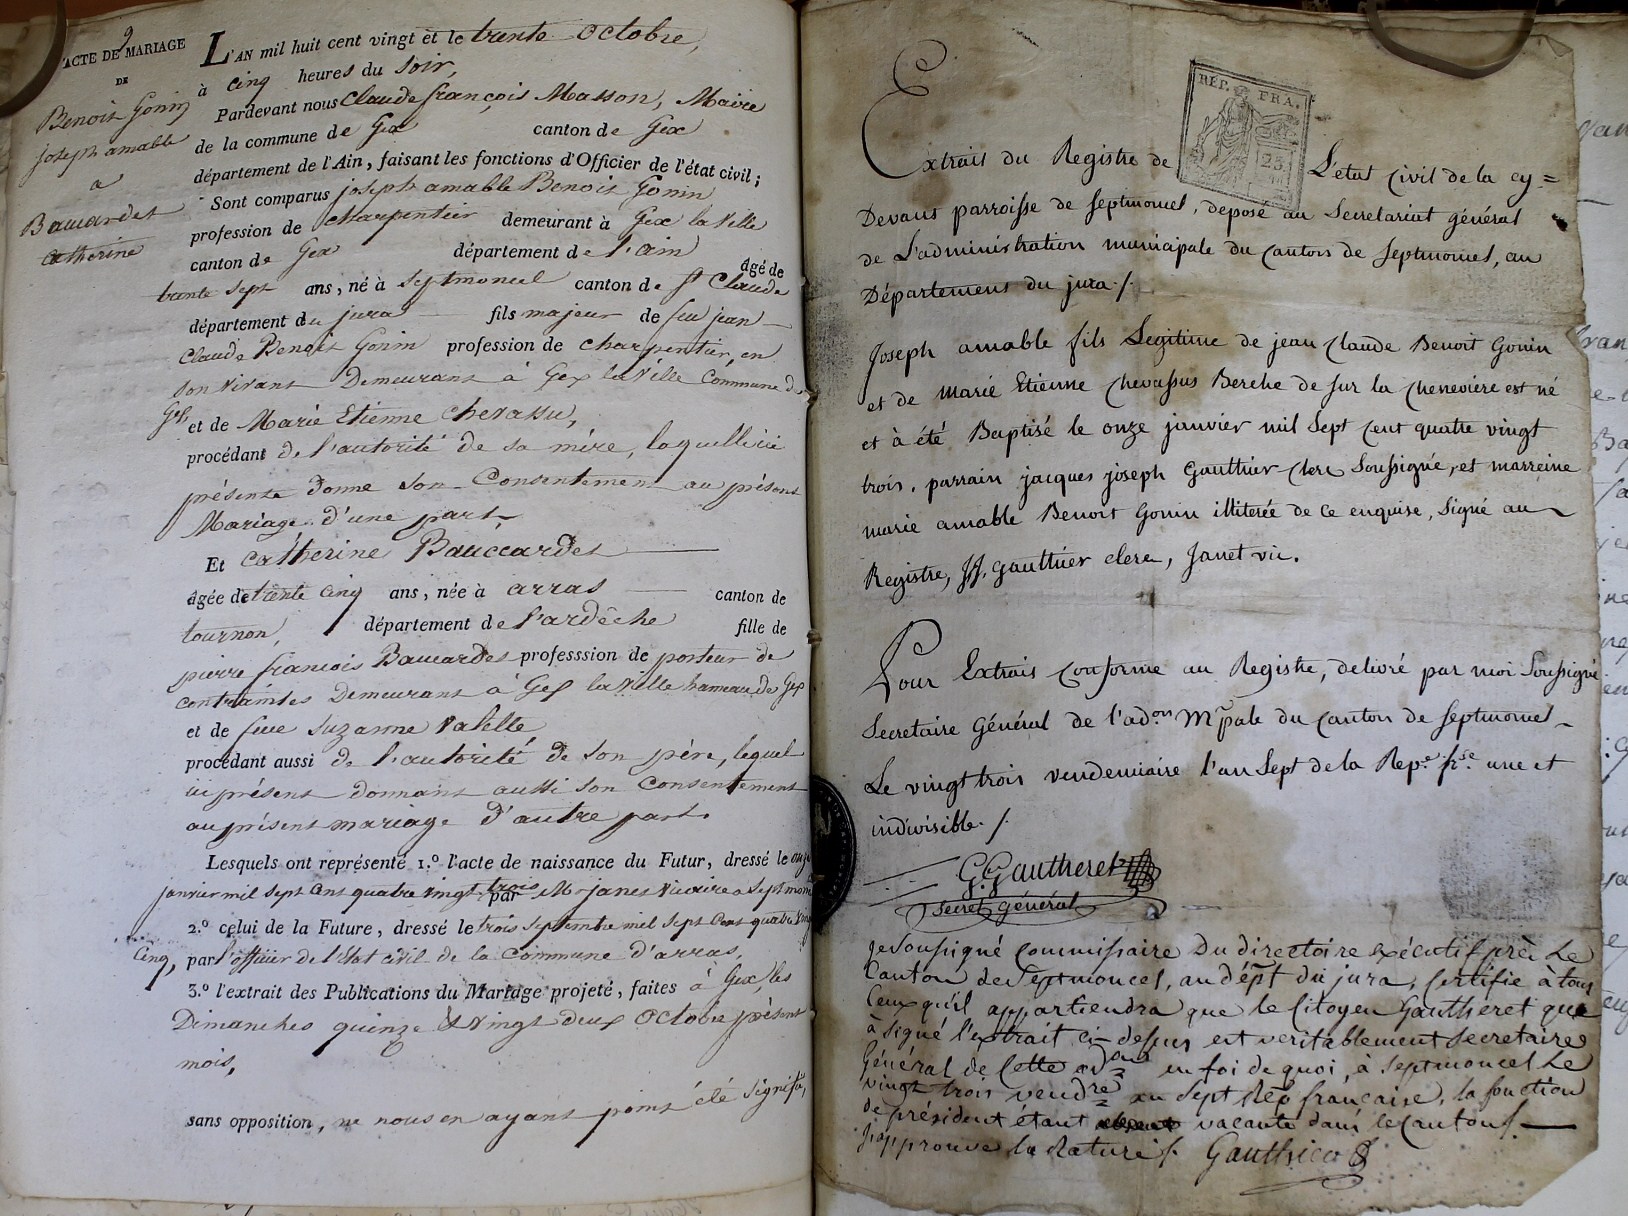 9
ACTE DE MARIAGE
DE
Benoit Gonin
joseph amable
a
Bauardet
Catherine
L'AN mil huit cent vingt et le trente octobre,
à cinq heures du soir,
Pardevant nous Claude françois Masson, Maire
de la commune de Gex canton de Gex
département de l'Ain, faisant les fonctions d'Officier de l'état civil;
Sont comparus joseph amable Benoit Gonin
profession de charpentier demeurant à Gex la Ville
canton de Gex département de l'ain âgé de
trente sept ans, né à Septmoncel canton de St Claude
département du jura fils majeur de feu jean
Claude Benoit Gonin profession de charpentier, en
son vivant Demeurant à Gex la Ville Commune de
Gex, et de Marie Etienne chevassu,
procédant de l'autorité de sa mère, laquelle ici
présente donne son Consentement au présent
Mariage d'une part,
Et catherine Bauccardet
âgée de trente cinq ans, née à arras canton de
tournon, département de l'ardêche fille de
pierre françois Bauardet professsion de porteur de
contraintes Demeurant à Gex la Ville hameau de Gex
et de feue suzanne Valette
procédant aussi de l'autorité de son père, lequel
ici présent donnant aussi son Consentement
au présent mariage d'autre part.
Lesquels ont représenté 1.º l'acte de naissance du Futur, dressé le onze
janvier mil sept cent quatre vingt trois par Mr janet Vicaire a Septmon
2.º celui de la Future, dressé le trois septembre mil sept cent quatre vingt
cinq, par l'officier de l'Etat civil de la Commune d'arras,
3.º l'extrait des Publications du Mariage projeté, faites à Gex, les
Dimanches quinze & vingt deux octobre présent
mois,
sans opposition, ne nous en ayant point été signifié,
REP. FRA.
25
Extrait du Registre de L'état civil de la cy=
Devant parroisse de septmoncel, deposé au Secretariat général
de L'administration municipale du canton de septmoncel, au
Département du jura./.
Joseph amable fils Legitime de jean claude Benoit Gonin
et de marie Etienne chevassus Berche de sur la cheneviere est né
et à été Baptisé le onze janvier mil sept cent quatre vingt
trois, parrain jacques joseph Gauthier clerc Soussigné, et marreine
marie amable Benoit Gonin illiterée de ce enquise, signé au
Registre, JJ. gauthier clerc, Janet vic.
Pour Extrait conforme au Registre, delivré par moi Soussigné
Secretaire Général de l'adon Mpale du canton de septmoncel
Le vingt trois vendemiaire l'an sept de la Repe frse une et
indivisible./.
G. Gautheret
Secret général
Je Soussigné commissaire Du directoire exécutif près le
Canton de Septmoncel, au dépt du jura, certifie à tous
ceux qu'il appartiendra que le Citoyen Gautheret que
à signé l'extrait ci-dessus est veritablement secretaire
Général de cette adon en foi de quoi, à septmoncel le
vingt trois vendre an sept Rép francaise, la fonction
de président étant vacante dans le canton/.
J'approuve la rature/. Gauthier